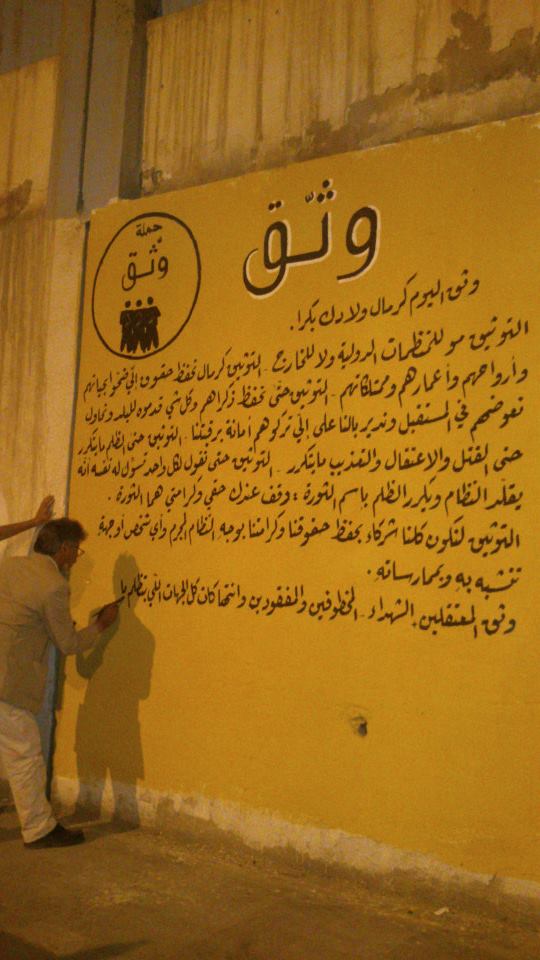 حملة
وثّق
وثّق
وثق اليوم كرمال ولادك بكرا .
التوثيق مو للمنظمات الدولية ولا للخارج - التوثيق كرمال نحفظ حقوق إلّي ضحّوا بحياتهم
وأرواحهم وأعمارهم وممتلكاتهم - التوثيق حتّى نحفظ ذكراهم وكل شي قدموه للبلد ونحاول
نعوضهم في المستقبل وندير بالنا على إلّي تركوهم أمانة برقبتنا - التوثيق حتى الظلم مايتكرر
حتى القتل والاعتقال والتعذيب مايتكرر - التوثيق حتى نقول لكل واحد تسوّل له نفسه أنّه
يقلّد النظام ويكرر الظلم بإسم الثورة : وقف عندك حقي وكرامتي هما الثورة .
التوثيق لنكون كلنا شركاء بحفظ حقوقنا وكرامتنا بوجه النظام المجرم وأي شخص أوجهة
تتشبه به وبممارساته .
وثق المعتقلين - الشهداء - المخطوفين والمفقودين وانتهاكات كل الجهات اللّي بتظلم يا